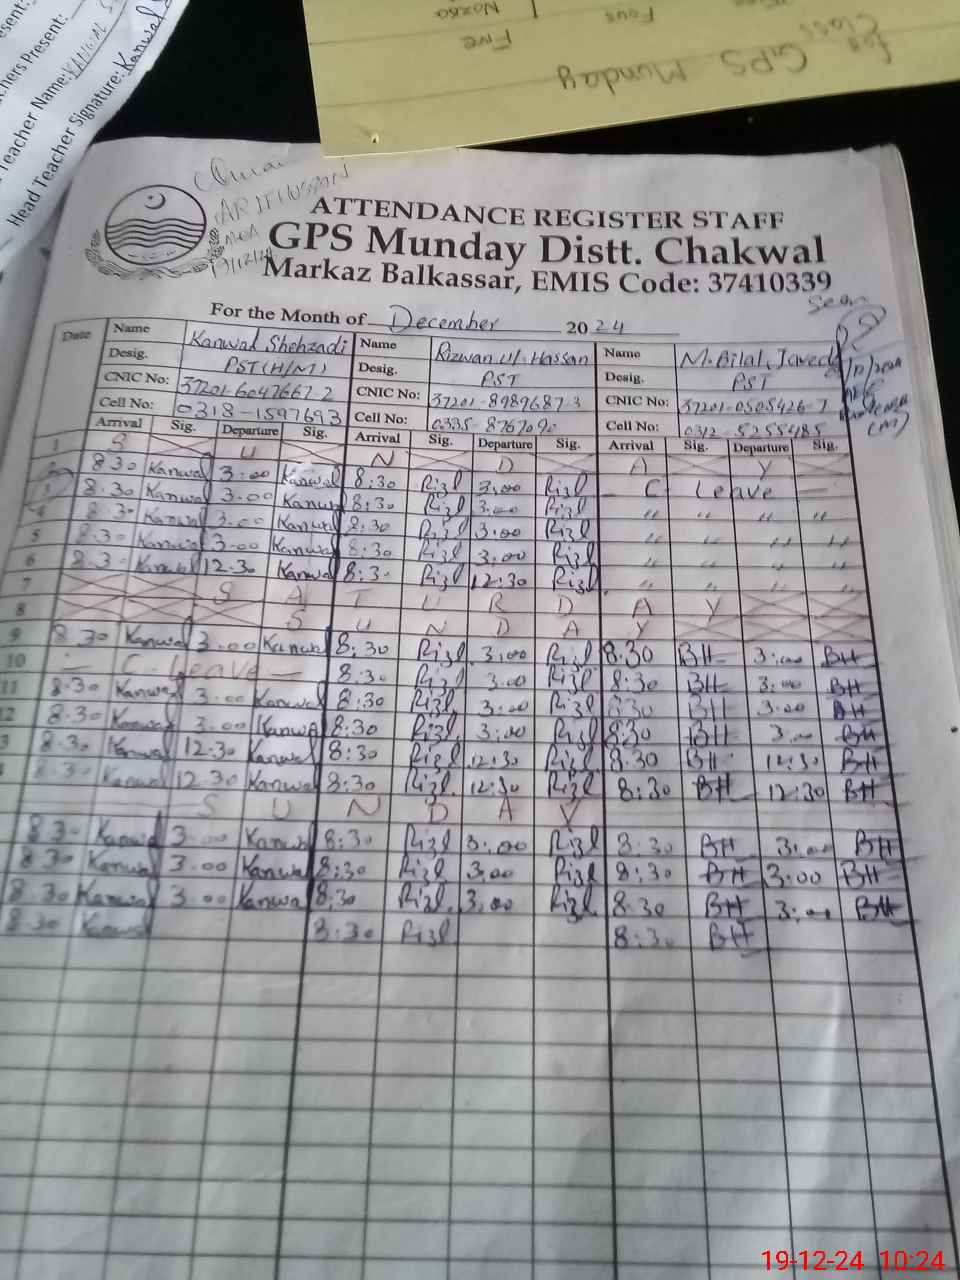 Teachers Present:
Teacher Name: KANWAL
Head Teacher Signature: Kanwal
for GPS Munday
Class
Five
Four
ARIF HUSSAIN
MEA
19/12/24
ATTENDANCE REGISTER STAFF
GPS Munday Distt. Chakwal
Markaz Balkassar, EMIS Code: 37410339
Seen
For the Month of December 2024
Date Name Kanwal Shehzadi Name Rizwan ul Hassan Name M. Bilal Javed
Desig. PST (H/M) Desig. PST Desig. PST
CNIC No: 37201-6047667-2 CNIC No: 37201-8989687-3 CNIC No: 37201-0505426-7
Cell No: 0318-1597693 Cell No: 0335-8767090 Cell No: 0312-5255485
Arrival Sig. Departure Sig. Arrival Sig. Departure Sig. Arrival Sig. Departure Sig.
1 S U N D A Y
8 30 Kanwal 3.00 Kanwal 8:30 Rizl 3.00 Rizl C Leave
3 8.30 Kanwal 3.00 Kanwal 8:30 Rizl 3.00 Rizl " " " "
4 8.30 Kanwal 3.00 Kanwal 8:30 Rizl 3:00 Rizl " " " "
5 8.30 Kanwal 3.00 Kanwal 8:30 Rizl 3:00 Rizl " " " "
6 8.3 Kanwal 12.30 Kanwal 8:3 Rizl 12:30 Rizl " " " "
7 S A T U R D A Y
8 S U N D A Y
9 8.30 Kanwal 3.00 Kanwal 8:30 Rizl 3:00 Rizl 8:30 BH 3:00 BH
10 — C. Leave — 8:30 Rizl 3:00 Rizl 8:30 BH 3:00 BH
11 8.30 Kanwal 3.00 Kanwal 8:30 Rizl 3:00 Rizl 8:30 BH 3:00 BH
12 8.30 Kanwal 3.00 Kanwal 8:30 Rizl 3:00 Rizl 8:30 BH 3:00 BH
3 8.30 Kanwal 12.30 Kanwal 8:30 Rizl 12:30 Rizl 8:30 BH 12:30 BH
8.30 Kanwal 12.30 Kanwal 8:30 Rizl 12:30 Rizl 8:30 BH 12:30 BH
S U N D A Y
8 3 Kanwal 3.00 Kanwal 8:30 Rizl 3:00 Rizl 8:30 BH 3:00 BH
8 30 Kanwal 3.00 Kanwal 8:30 Rizl 3:00 Rizl 8:30 BH 3:00 BH
8.30 Kanwal 3.00 Kanwal 8:30 Rizl 3:00 Rizl 8:30 BH 3:00 BH
8.30 Kanwal 8:30 Rizl 8:30 BH
19-12-24 10:24